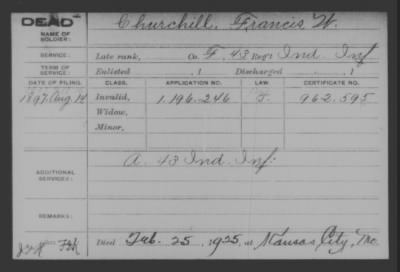 DEAD
NAME OF SOLDIER: Churchill, Francis W.
SERVICE: Late rank, Co. F, 43 Reg't Ind. Inf.
TERM OF SERVICE: Enlisted , 1 Discharged , 1
DATE OF FILING. CLASS. APPLICATION NO. LAW. CERTIFICATE NO.
1897. Aug. 14 Invalid, 1.196.246 962.595
Widow,
Minor,
ADDITIONAL SERVICES: A. 43 Ind. Inf.
REMARKS:
Died Feb. 25, 1925, at Kansas City, Mo.